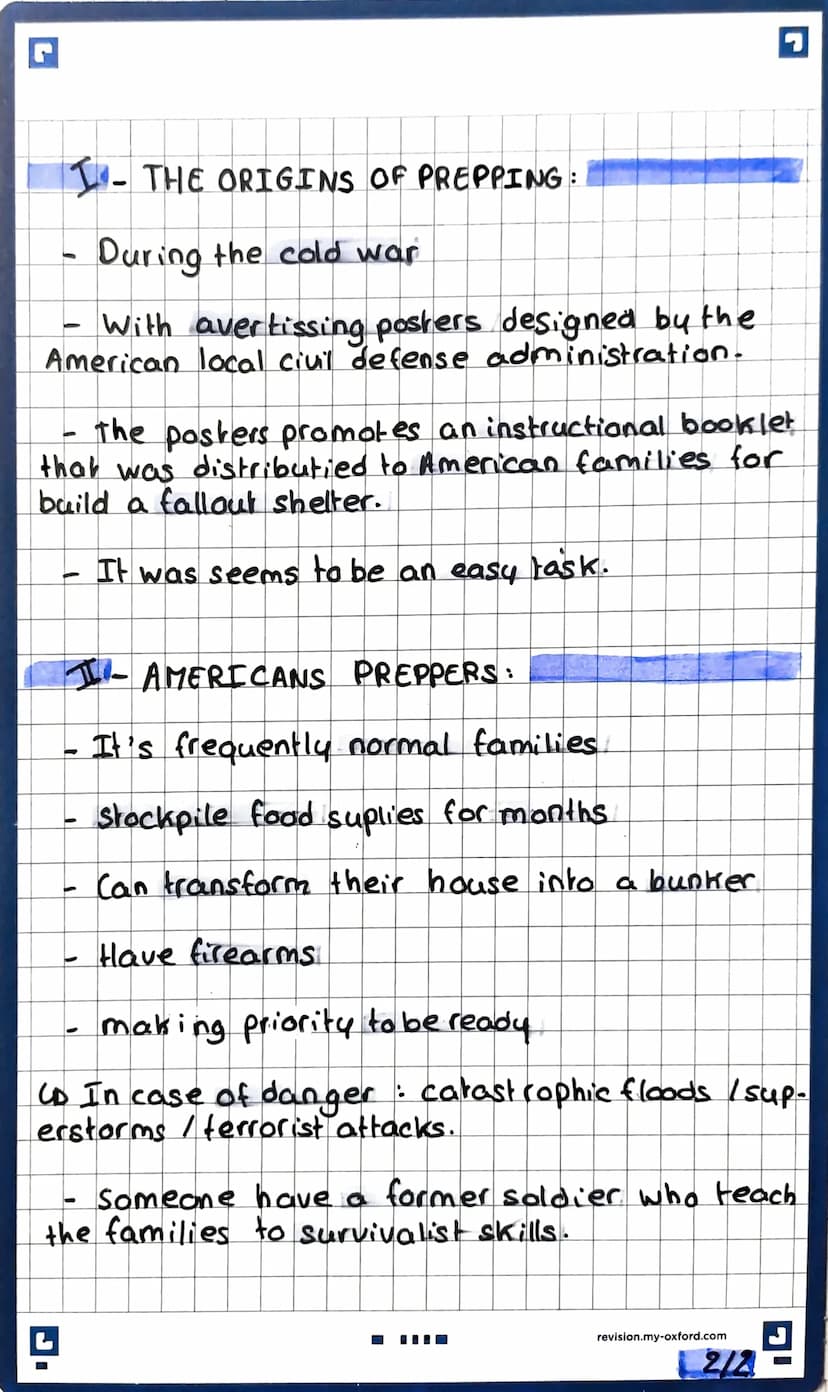 I - THE ORIGINS OF PREPPING :
- During the cold war
- With avertissing posters designed by the
American local civil defense administration.
- The posters promotes an instructional booklet
that was distributied to American families for
build a fallout shelter.
- It was seems to be an easy task.
II - AMERICANS PREPPERS :
- It's frequently normal families
- stockpile food suplies for months
- Can transform their house into a bunker
- Have firearms
- making priority to be ready
↳ In case of danger : catastrophic floods / sup-
erstorms / terrorist attacks.
- someone have a former soldier who teach
the families to survivalist skills.
revision.my-oxford.com
2/2